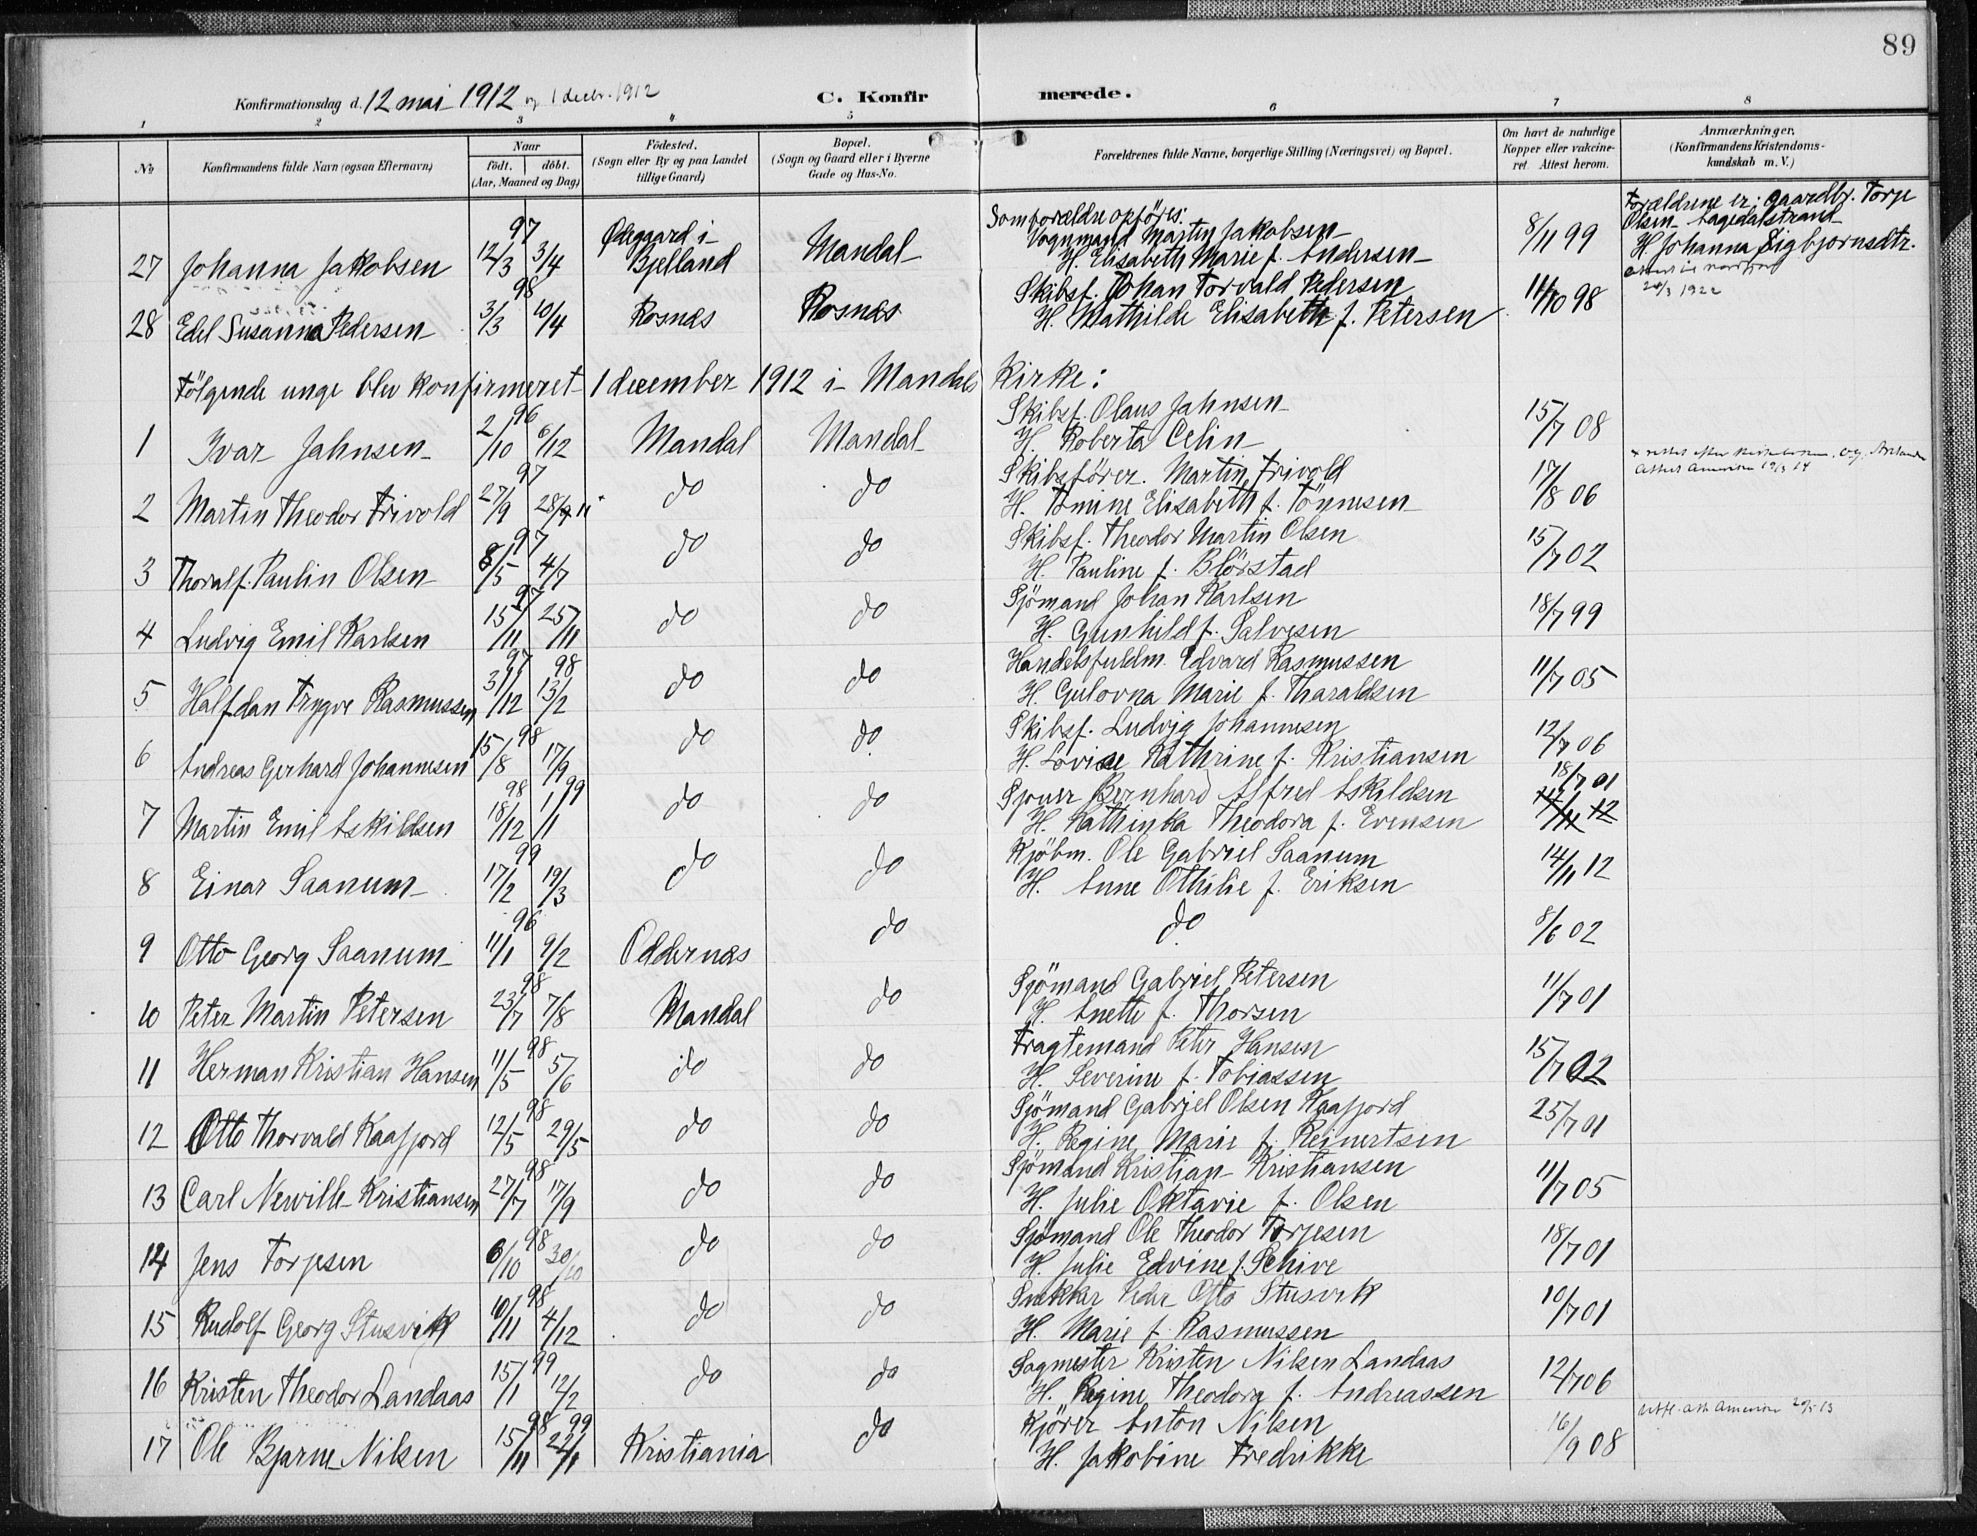 89
Konfirmationsdag d. 12 mai 1912 og 1 decbr. 1912 C. Konfirmerede.
1 2 3 4 5 6 7 8
No
Konfirmandens fulde Navn (ogsaa Efternavn)
Naar
födt. döbt.
(Aar, Maaned og Dag)
Födested.
(Sogn eller By og paa Landet
tillige Gaard)
Bopæl.
(Sogn og Gaard eller i Byerne
Gade og Hus-No.
Forældrenes fulde Navne, borgerlige Stilling (Næringsvei) og Bopæl.
Om havt de naturlige
Kopper eller vakcine-
ret. Attest herom.
Anmærkninger.
(Konfirmandens Kristendoms-
kundskab m. V.)
97
27 Johanna Jakobsen 12/3 3/4 Ødegaard i Bjelland Mandal
Som forældre opföres:
Vognmand Martin Jakobsen
H. Elisabeth Marie f. Andersen
8/11 99
Forældrene er: Gaardbr. Torje
Olsen
H. Johanna Sigbjornsdtr.
20/3 1922
98
28 Edel Susanna Pedersen 3/3 10/4 Rosnes Rosnes
Skibsf. Johan Torvald Pedersen
H. Mathilde Elisabeth f. Petersen
11/10 98
Følgende unge blev konfirmeret 1 december 1912 i Mandals Kirke:
96
1 Ivar Jahnsen 2/10 6/12 Mandal Mandal
Skibsf. Olaus Jahnsen
H. Roberta Celin
15/7 08
97
2 Martin Theodor Trivold 27/9 28/11 do do
Skibsförer. Martin Trivold
H. Tomine Elisabeth f. Tönnesen
17/8 06
97
3 Thoralf Paulin Olsen 8/5 4/7 do do
Skibsf. Theodor Martin Olsen
H. Pauline f. Blörstad
15/7 02
97
4 Ludvig Emil Karlsen 15/11 25/11 do do
Sjömand Johan Karlsen
H. Gunhild f. Salvesen
18/7 99
97 98
5 Halfdan Trygve Rasmussen 31/12 13/2 do do
Handelsfuldm. Edvard Rasmussen
H. Gulovna Marie f. Tharaldsen
11/7 05
98
6 Andreas Gerhard Johannesen 15/8 17/9 do do
Skibsf. Ludvig Johannesen
H. Lovise Kathrine f. Kristiansen
12/7 06
98 99
7 Martin Emil Askildsen 18/12 1/1 do do
Bernhard Alfred Askildsen
H. Kathinka Theodora f. Evensen
18/7 01
99
8 Einar Saanum 17/2 19/3 do do
Kjöbm. Ole Gabriel Saanum
H. Anne Othilie f. Eriksen
14/11 12
96
9 Otto Georg Saanum 11/1 9/2 Oddernes do
do
8/6 02
98
10 Peter Martin Petersen 23/7 7/8 Mandal do
Sjömand Gabriel Petersen
H. Anette f. Thorsen
11/7 01
98
11 Herman Kristian Hansen 11/5 5/6 do do
Fragtemand Peter Hansen
H. Severine f. Tobiassen
15/7 02
98
12 Otto Thorvald Kaafjord 12/5 29/5 do do
Sjömand Gabriel Olsen Kaafjord
H. Regine Marie f. Reinertsen
25/7 01
98
13 Carl Neville Kristiansen 27/7 17/9 do do
Sjömand Kristian Kristiansen
H. Julie Oktavie f. Olsen
11/7 05
98
14 Jens Torjesen 6/10 30/10 do do
Sjömand Ole Theodor Torjesen
H. Julie Edvine f. Schive
18/7 01
98
15 Rudolf Georg Stusvik 10/11 4/12 do do
Snekker Peder Otto Stusvik
H. Marie f. Rasmussen
10/7 01
99
16 Kristen Theodor Landaas 15/1 12/2 do do
Sagmester Kristen Nilsen Landaas
H. Regine Theodora f. Andreassen
12/7 06
98 99
17 Ole Bjarne Nilsen 15/11 22/1 Kristiania do
Kjörer Anton Nilsen
H. Jakobine Fredrikke
16/9 08